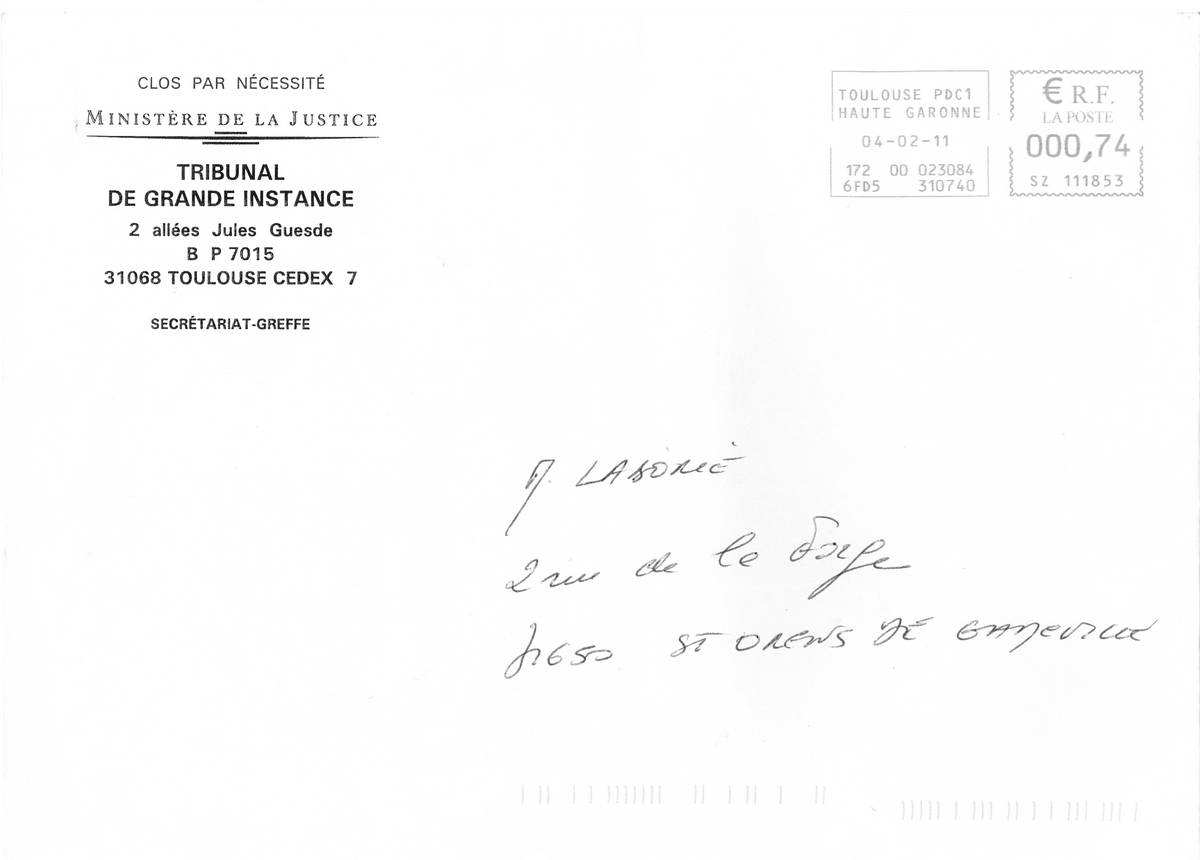 CLOS PAR NÉCESSITÉ
MINISTÈRE DE LA JUSTICE
TRIBUNAL
DE GRANDE INSTANCE
2 allées Jules Guesde
B P 7015
31068 TOULOUSE CEDEX 7
SECRÉTARIAT-GREFFE
TOULOUSE PDC1
HAUTE GARONNE
04-02-11
172 00 023084
6FD5 310740
€ R.F.
LA POSTE
000,74
SZ 111853
M. LABORIE
2 rue de la Forge
31650 ST ORENS DE GAMEVILLE